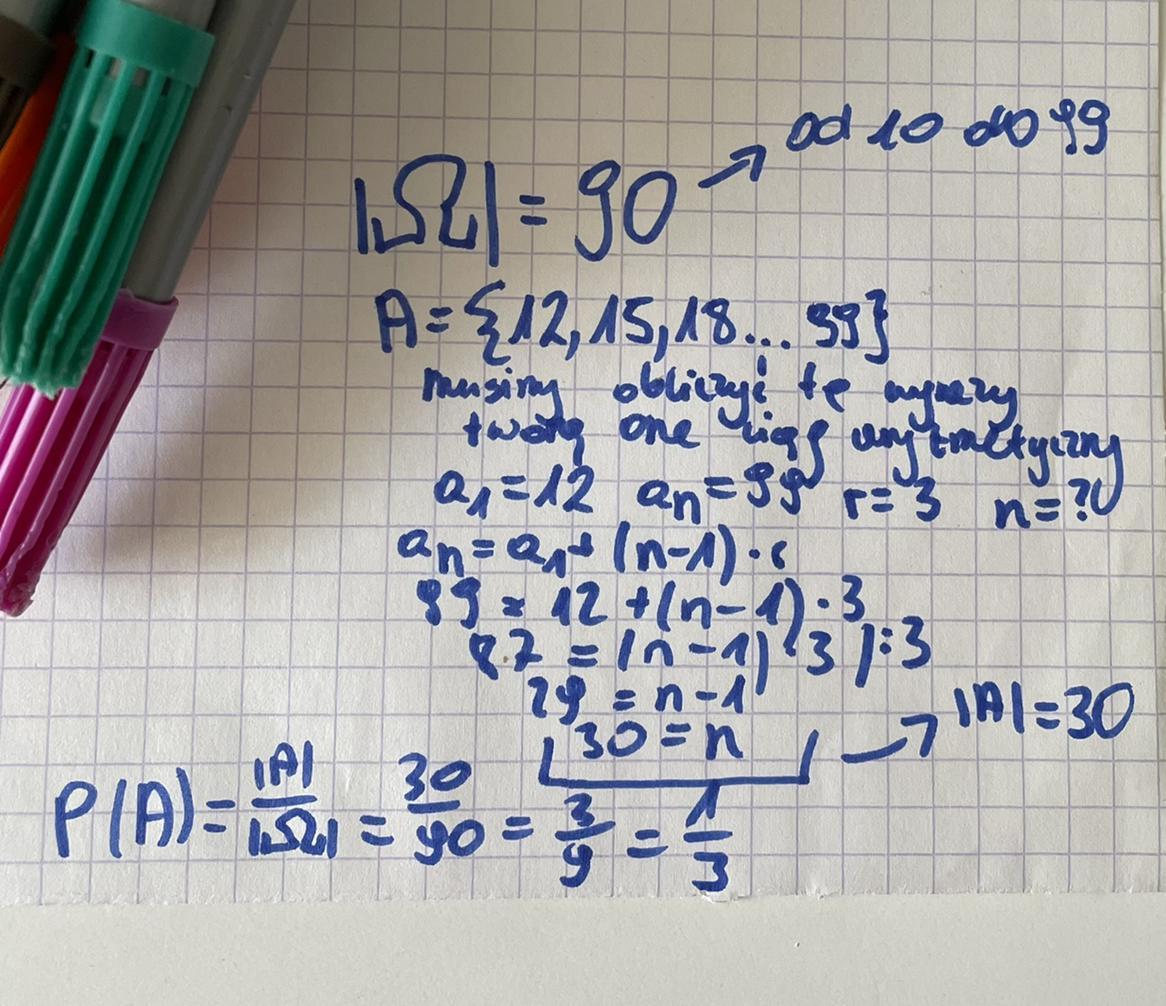 |Ω| = 90 → od 10 do 99
A = {12, 15, 18... 99}
musimy obliczyć te wyrazy
tworzą one ciąg arytmetyczny
a₁ = 12 aₙ = 99 r = 3 n = ?
aₙ = a₁ + (n-1) · r
99 = 12 + (n-1) · 3
87 = (n-1) · 3 /:3
29 = n-1
30 = n → |A| = 30
P(A) = |A|/|Ω| = 30/90 = 3/9 = 1/3